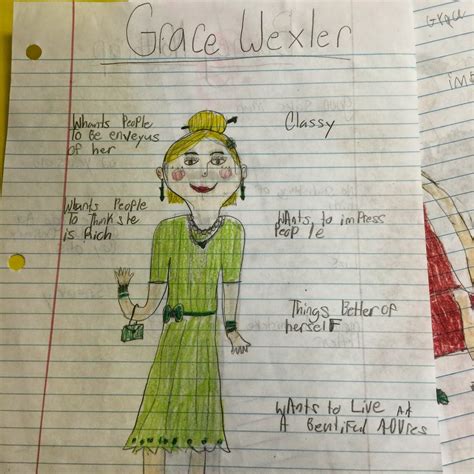 Grace Wexler
Whants People
to be enveyus
of her
Whants People
To Think she
is Rich
Classy
Wants to imPress
PeoPle
Things Better of
herself
Wants to Live At
A Bentiful
Grac